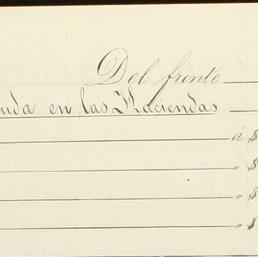 Del frente
uda en las Haciendas
á $
" $
" $
" $